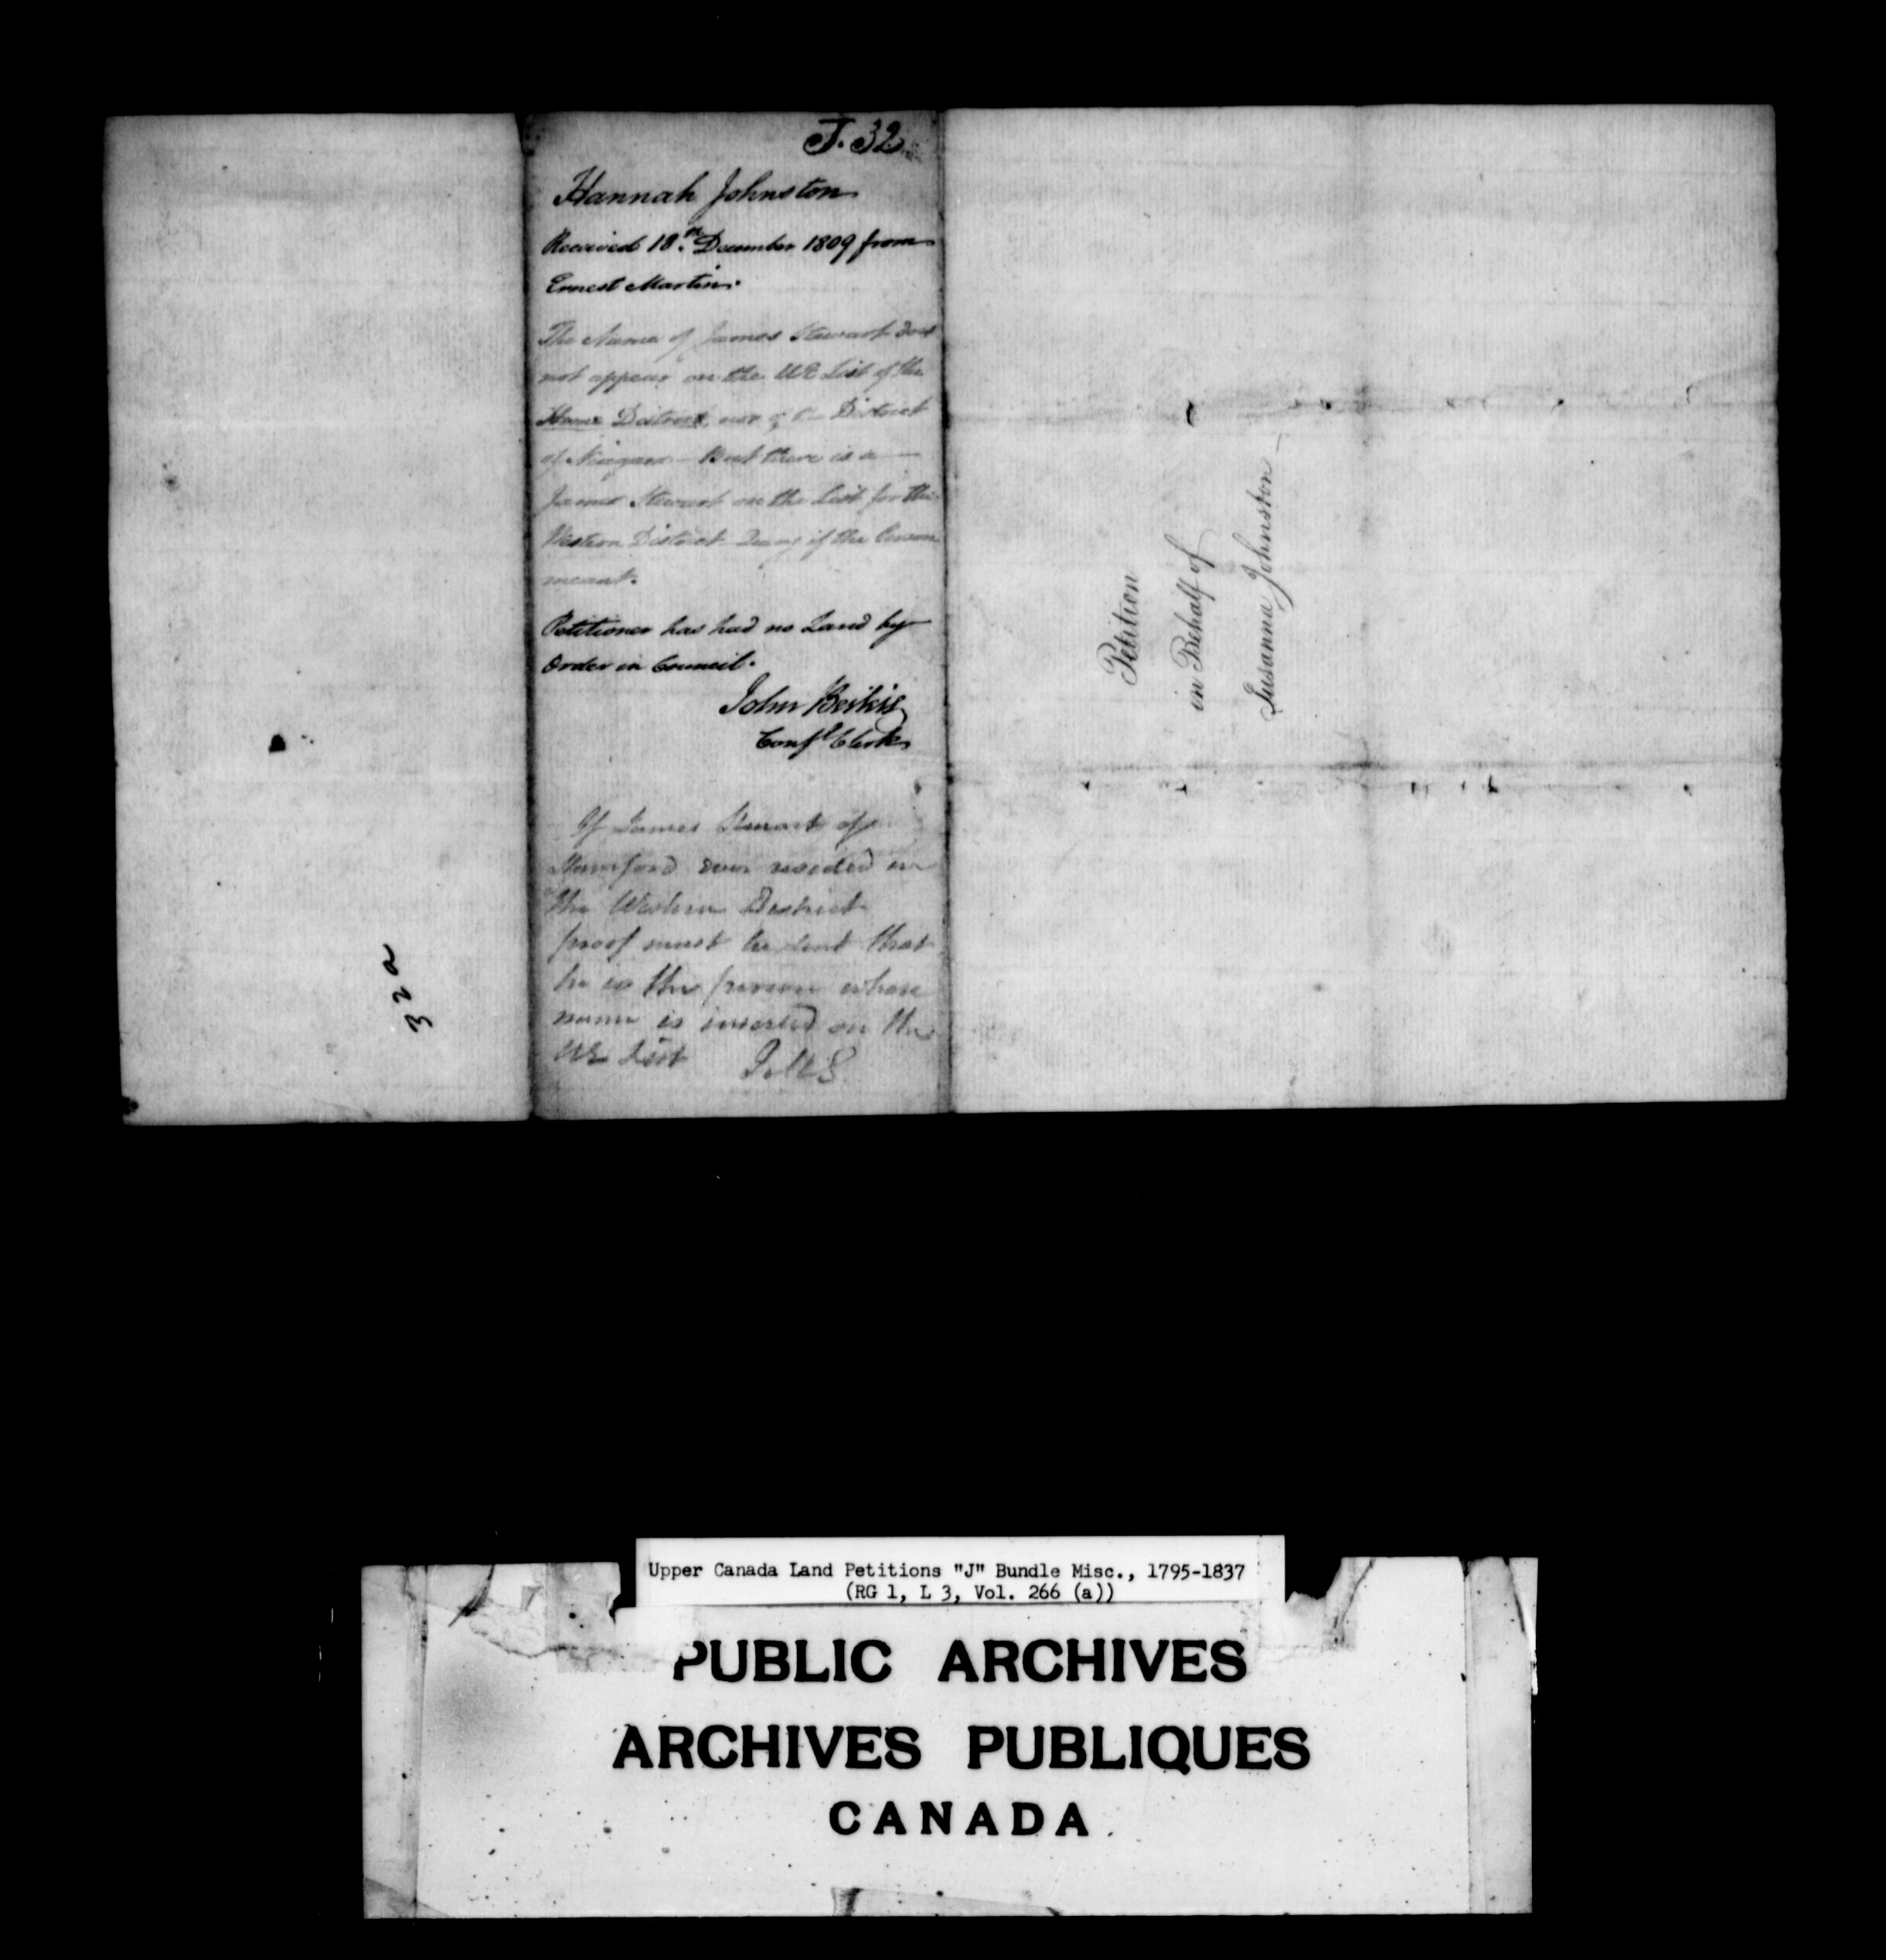 J. 32
Hannah Johnston
Received 18.th December 1809 from
Ernest Martin.
The Name of James Stewart does
not appear on the UE List of the
Home District, nor of the District
of Niagara - But there is a
James Stewart on the List for the
Western District Quæry if the Person
meant.
Petitioner has had no Land by
Order in Council.
John Beikie
Confl Clerk
If James Stewart of
Stamford ever resided in
the Western District
proof must be sent that
he is the person whose
name is inserted on the
UE List
32a
Petition
in Behalf of
Susanna Johnston
Upper Canada Land Petitions "J" Bundle Misc., 1795-1837
(RG 1, L 3, Vol. 266 (a))
PUBLIC ARCHIVES
ARCHIVES PUBLIQUES
CANADA